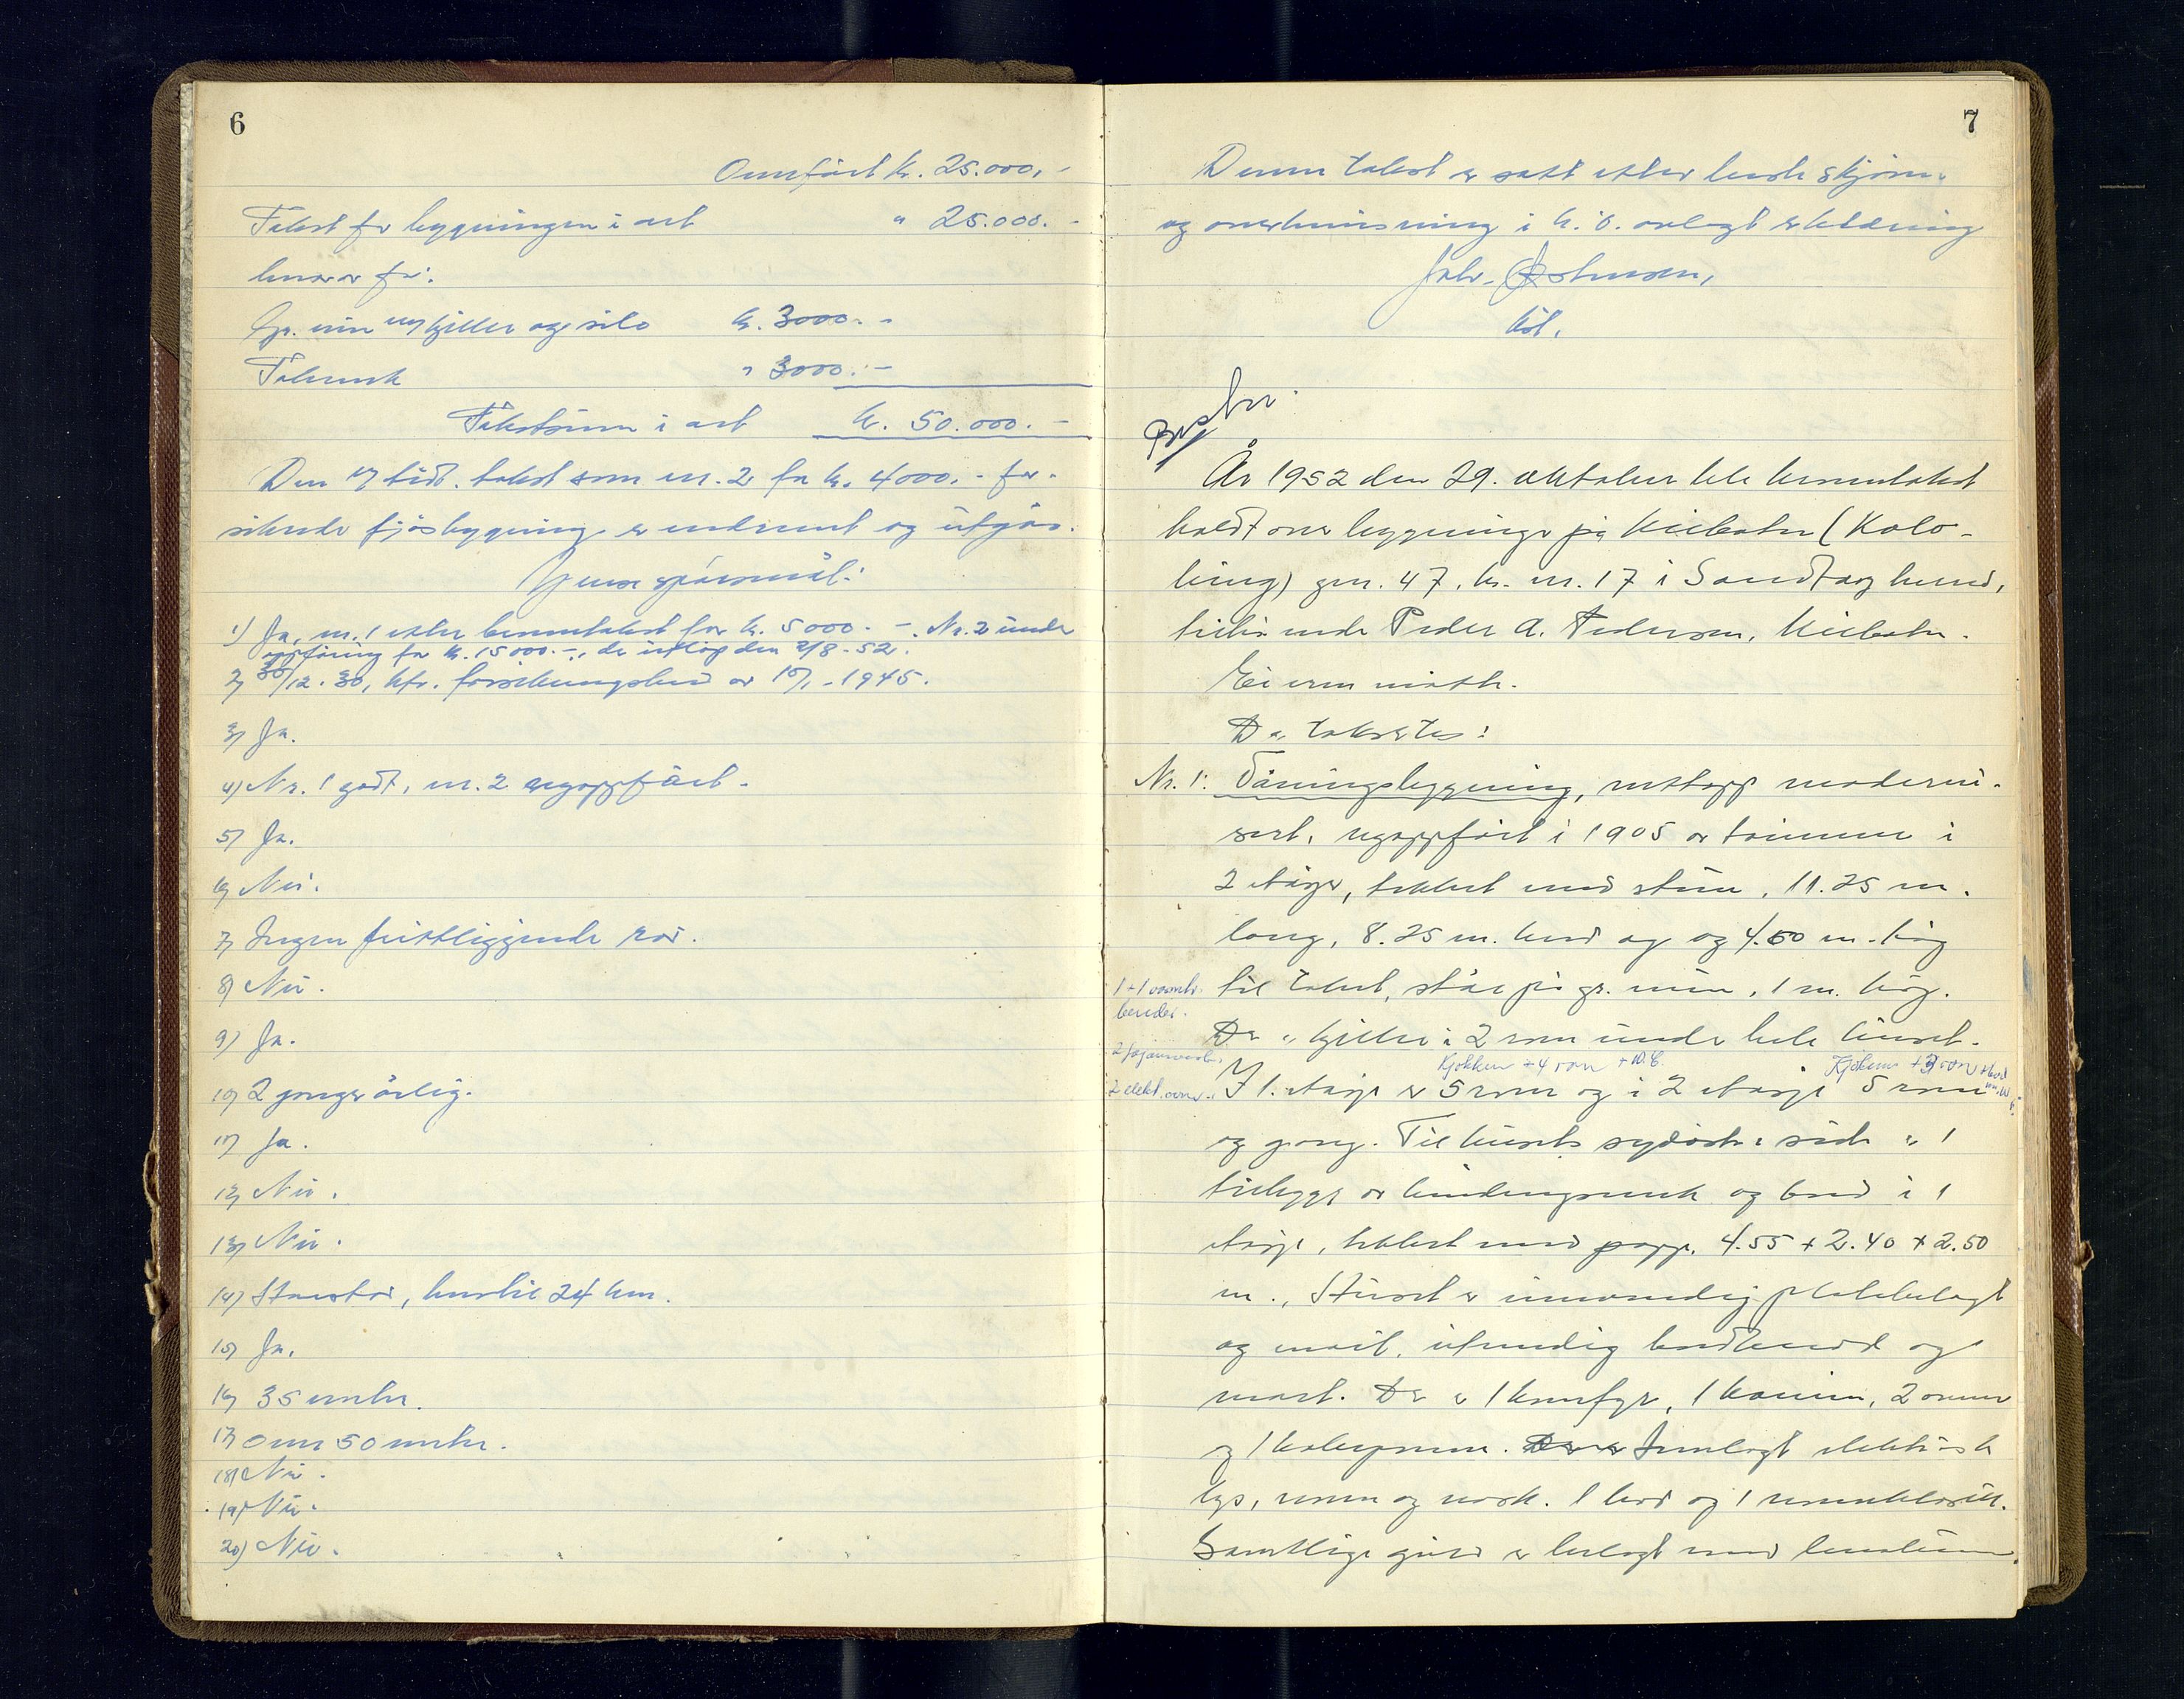 6
Overført kr. 25.000,-
Takst for bygningen i alt " 25.000.-
herav for:
Gr. mur m/kjeller og silo kr. 3000.-
Takverk " 3000.-
Takstsum i alt kr. 50.000.-
Den tidl. takst som nr. 2 for kr. 4000,- for-
sikrede fjøsbygning er nedrevet og utgår.
Spørsmål:
1) Ja, nr. 1 etter branntakst for kr. 5000.-. Nr. 2 under
oppføring for kr. 15000.-, de utløp den 2/8-52.
2) 30/12.30, kfr. forsikringsbrev av 15/1-1945.
3) Ja.
4) Nr. 1 godt, nr. 2 nyoppført.
5) Ja.
6) Nei.
7) Ingen frittliggende rør.
8) Nei.
9) Ja.
10) 2 ganger årlig.
11) Ja.
12) Nei.
13) Nei.
14) Harstad, 24 km.
15) Ja.
16) 35 meter.
17) Over 50 meter.
18) Nei.
19) Nei.
20) Nei.
7
Denne takst er satt etter beste skjønn
og overbevisning i h. t. avlagt erklæring
Johnsen,
År 1952 den 29. oktober ble branntakst
holdt over bygninger på Kilbotn (Solo-
ling) gnr. 47, br. nr. 17 i Sandtorg herred,
tilhørende Peder A. Pedersen, Kilbotn.
Eieren møtte.
Da takseres:
Nr. 1: Våningsbygning, nettopp moderni-
sert, nyoppført i 1905 av tømmer i
2 etager, tekket med sten, 11.25 m.
lang, 8.25 m. bred og og 4.50 m. høg
til taket, står på gr. mur, 1 m. høg.
1+1
Der er kjeller i 2 rom under hele huset.
Kjøkken + 4 rom + W.C. Kjøkken + 3 rom + bad
2 elekt. ovner.
I 1. etage er 5 rom og i 2 etage 5 rom
og gang. Til husets sydøstre side er 1
tilbygg av bindingsverk og bord i 1
etage, tekket med papp, 4.55 + 2.40 + 2.50
m., Huset er innvendig platebelagt
og malt, utvendig bordkledd og
malt. Der er 1 komfyr, 1 kamin, 2 ovner
og 1 kokegrue. Innlagt elektrisk
lys, varme og vask. 1 bad og 1 vannklosett.
Samtlige gulv er belagt med linoleum.